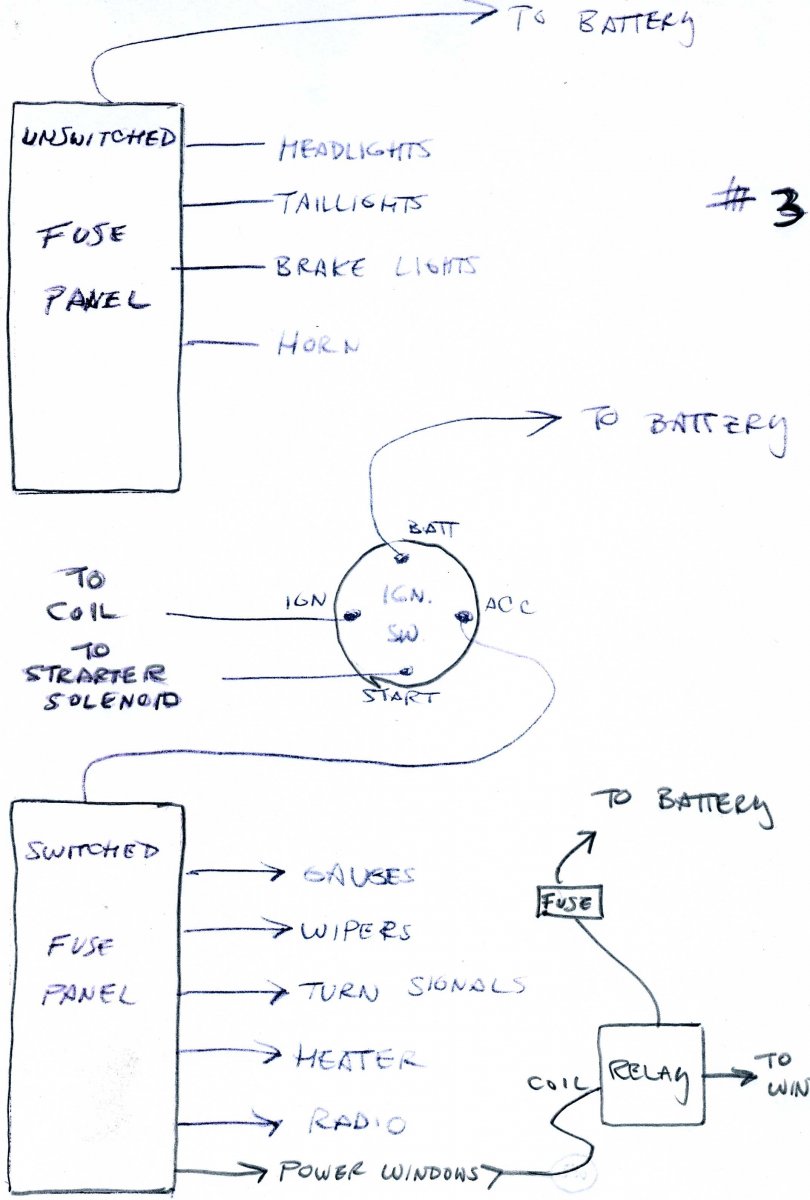 TO BATTERY
UNSWITCHED
FUSE
PANEL
HEADLIGHTS
TAILLIGHTS
BRAKE LIGHTS
HORN
# 3
TO BATTERY
BATT
IGN
IGN.
SW.
ACC
START
TO
COIL
TO
STRARTER
SOLENOID
SWITCHED
FUSE
PANEL
GAUGES
WIPERS
TURN SIGNALS
HEATER
RADIO
POWER WINDOWS
TO BATTERY
FUSE
COIL
RELAY
TO
WIN